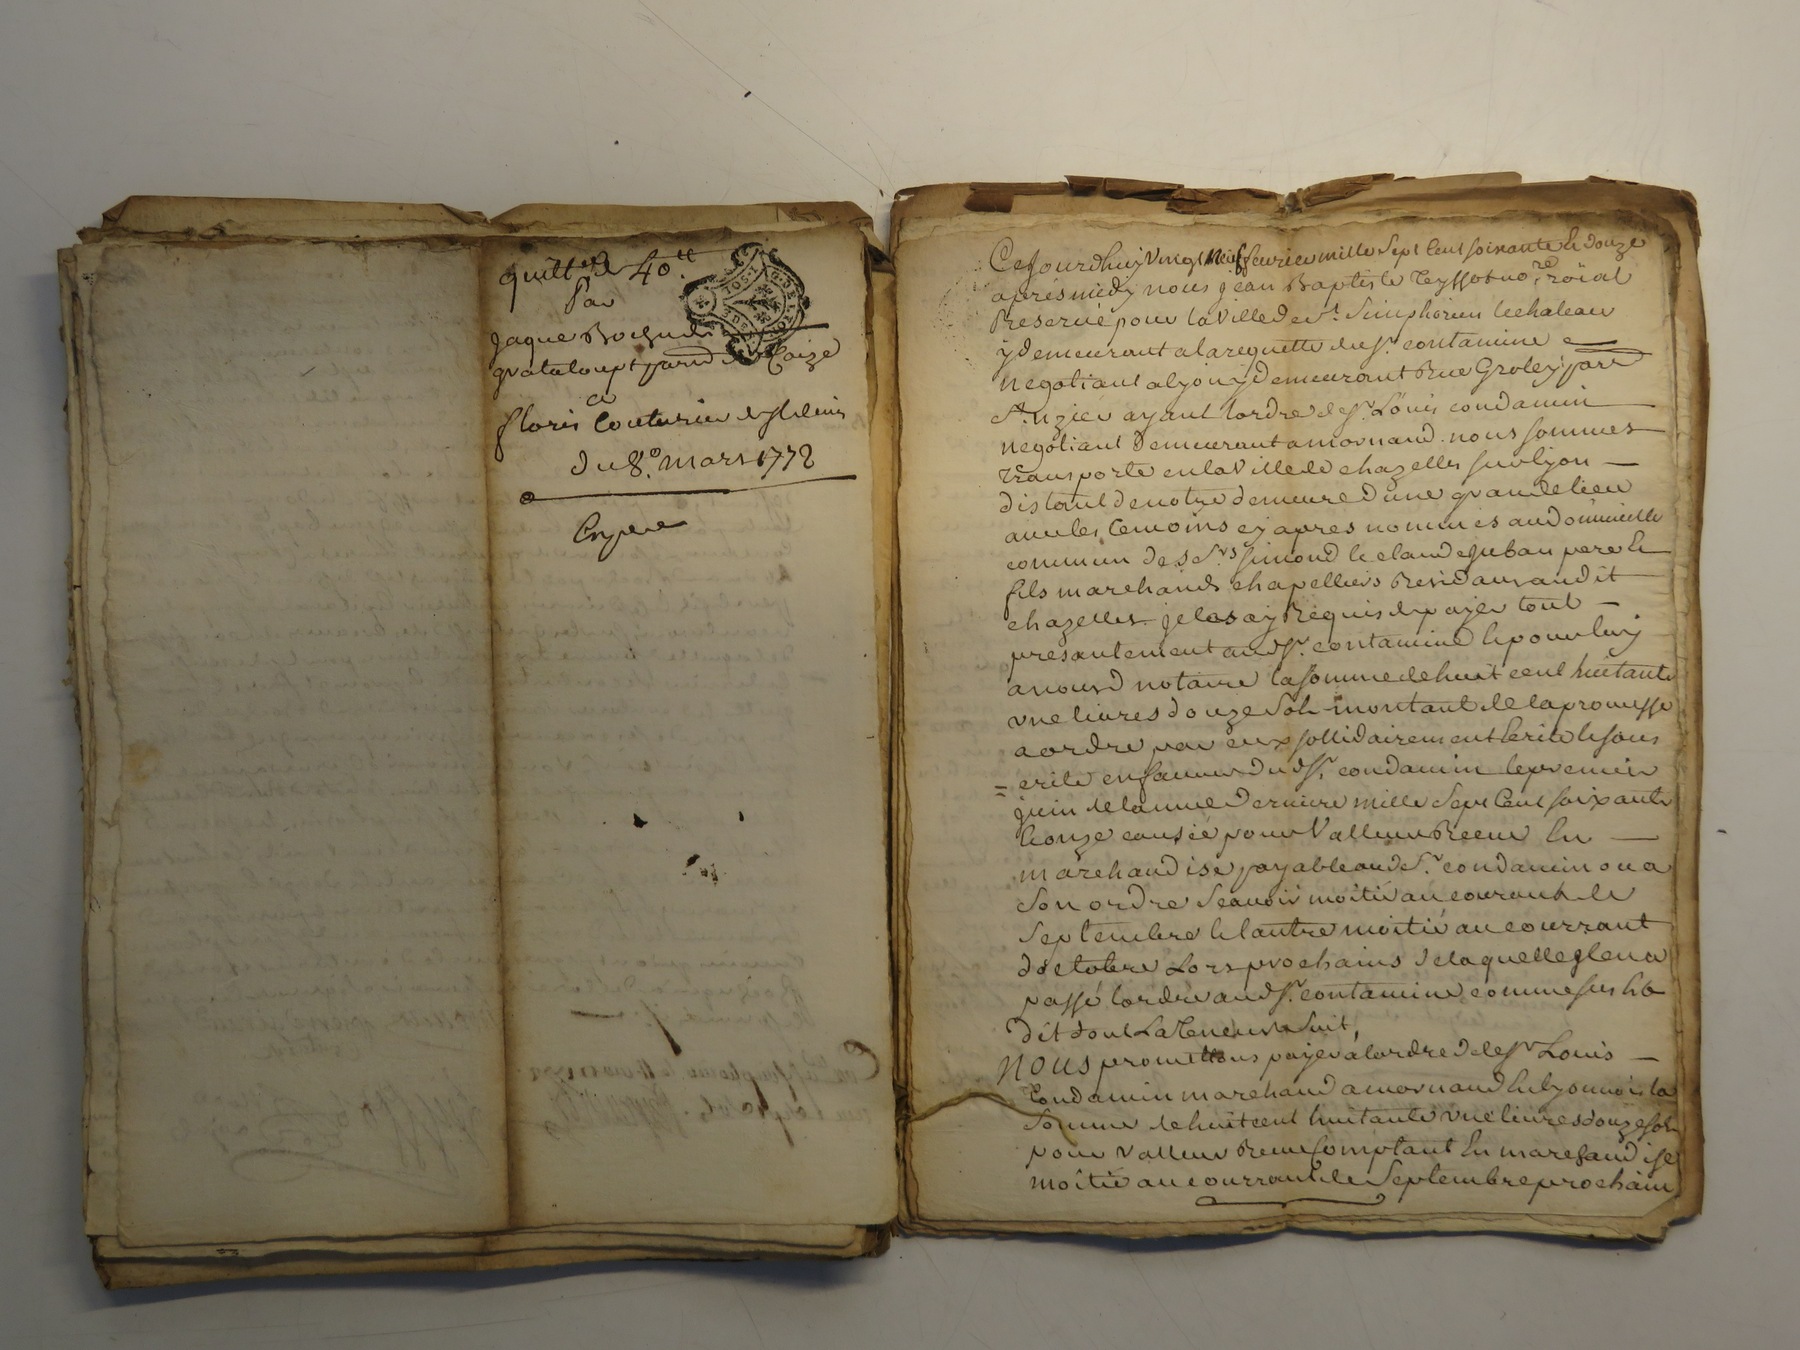 quitt.ce de 40.tt
Par
Jaque
grataloup
a
floris Couturier
du 8.e mars 1772
Expene
Cejourdhuy vingt Neuf feurier mille Sept Cent soixante & douze
apres midy nous jean Baptiste Teyssot no.re roïal
Reservé pour la Ville de S.t Simphorien lechateau
y demeurant a la requette du S.r contamine
negotiant a lyon y demeurant Rue Groley parr
S.t Nizier ayant lordre de S.r Loüis condamin
negotiant Demeurant a mornand nous sommes
Transporté en la Ville de chazelles sur lyon
distant de notre demeure d'une grande lieu
auec les temoins cy apres nommés au domicille
commun des S.rs simond & claude pere &
fils marchands chapelliers Residans audit
chazelles je les ay Requis de payer tout
presantement aud S.r contamine & pour luy
a nous d notaire la somme de huit cent huitante
vne liures douze Sols montant de la promesse
a ordre par eux sollidairement Ecrite & sous
= crite en faueur dud S.r condamin le premier
juin de lannée Derniere mille Sept Cent soixante
& onze causée pour Valleur Receue En
marchandise payable aud S.r condamin ou a
Son ordre Scauoir moitié au courant de
Septembre & lautre moitié au courrant
doctobre Lors prochains de laquelle il en a
passé lordre aud S.r contamine comme sus est
dit dont La Teneur Suit,
Nous promettons payer a lordre de S.r Louis
Condamin marchand a mornand En lyonnois la
Somme de huit cent huitante vne liures douze sols
pour Valleur Receue Comptant En marchandise
moitié au courrant de Septembre prochain